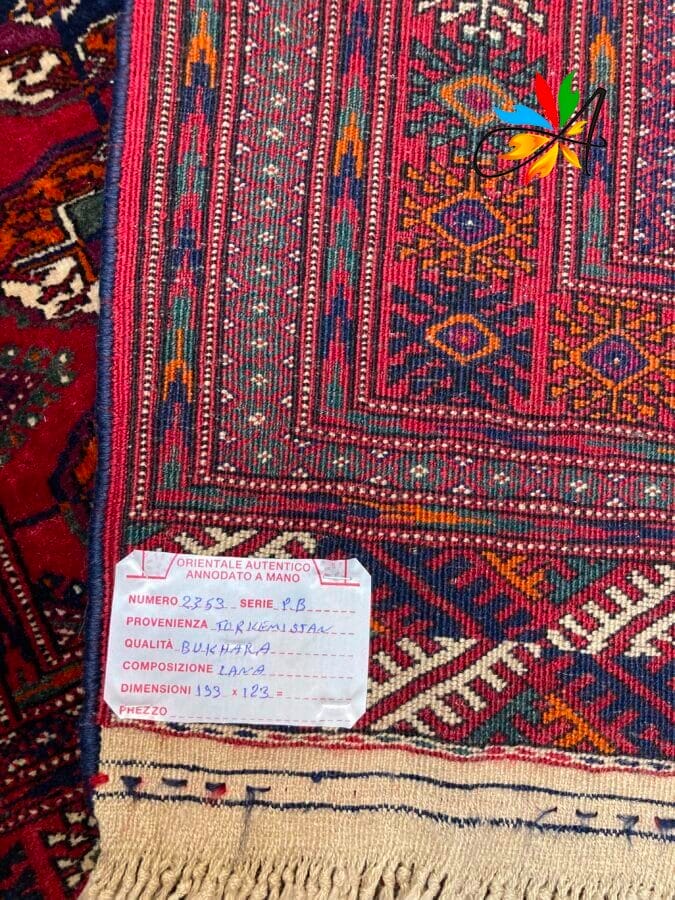 ORIENTALE AUTENTICO
ANNODATO A MANO
NUMERO 2353 SERIE P.B
PROVENIENZA TURKEMISTAN
QUALITÀ BUKHARA
COMPOSIZIONE LANA
DIMENSIONI 193 x 123 =
PREZZO